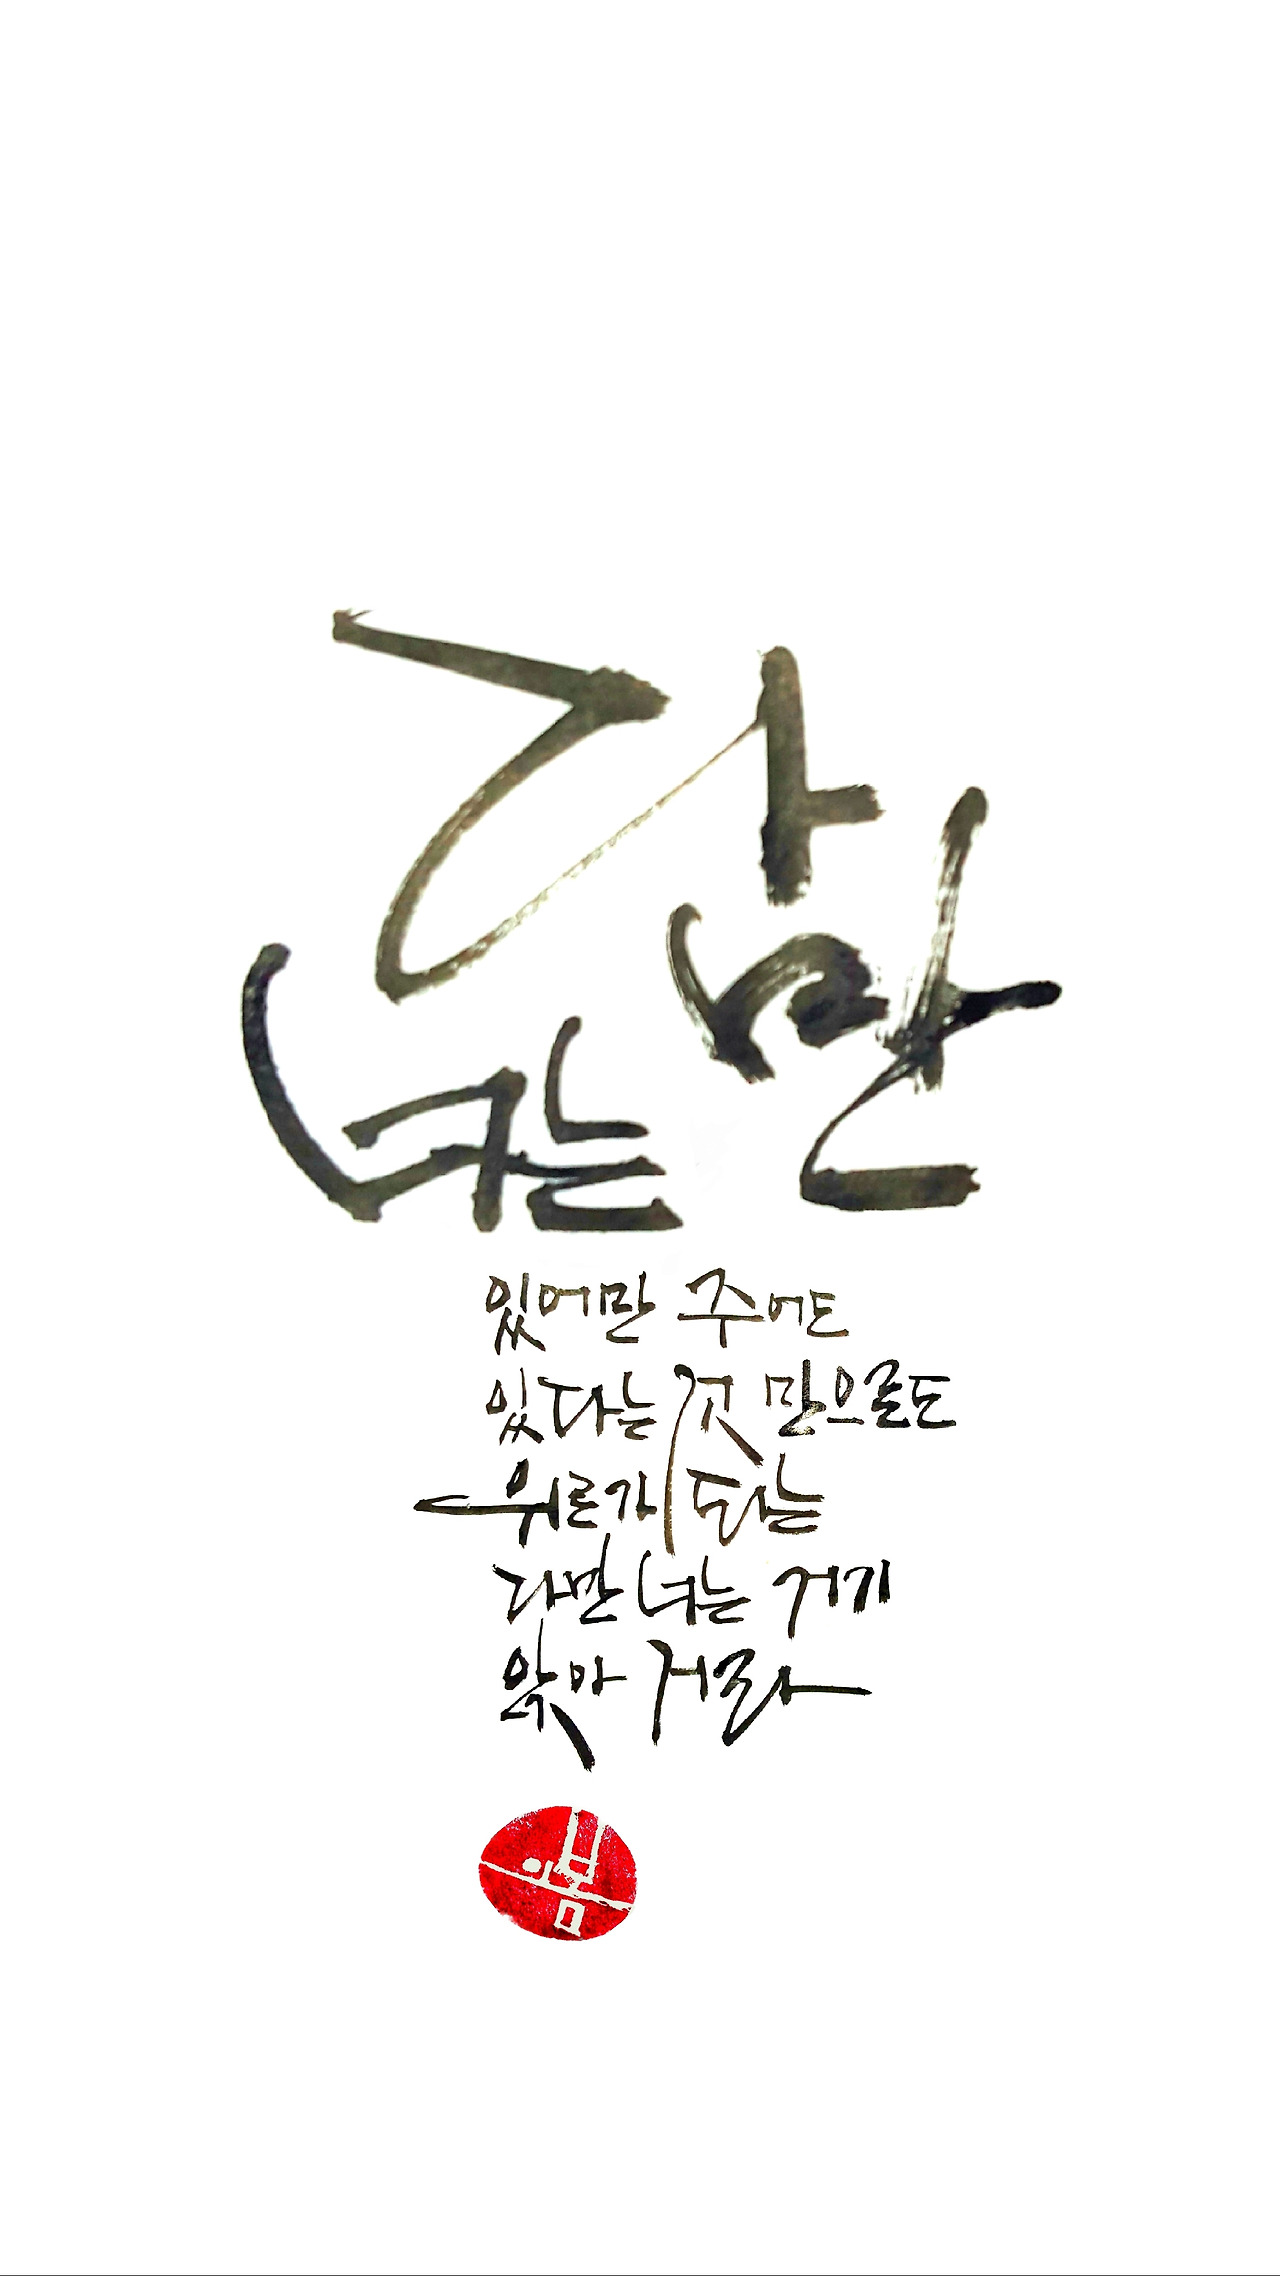 다만
너는
있어만 주어도
있다는 것 만으로도
위로가 되는
다만 너는 거기
앉아 거라
이봄